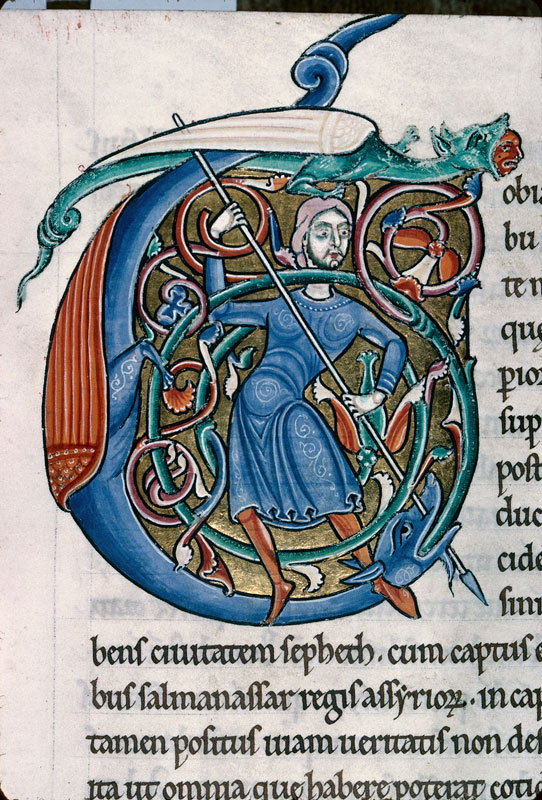 obi
bu
ten
que
prior
sup
post
duc
cide
sim
bens ciuitatem sepheth. cum captus e
bus salmanassar regis assyrioꝝ. in cap
tamen positus uiam ueritatis non des
ita ut omnia que habere poterat cotid